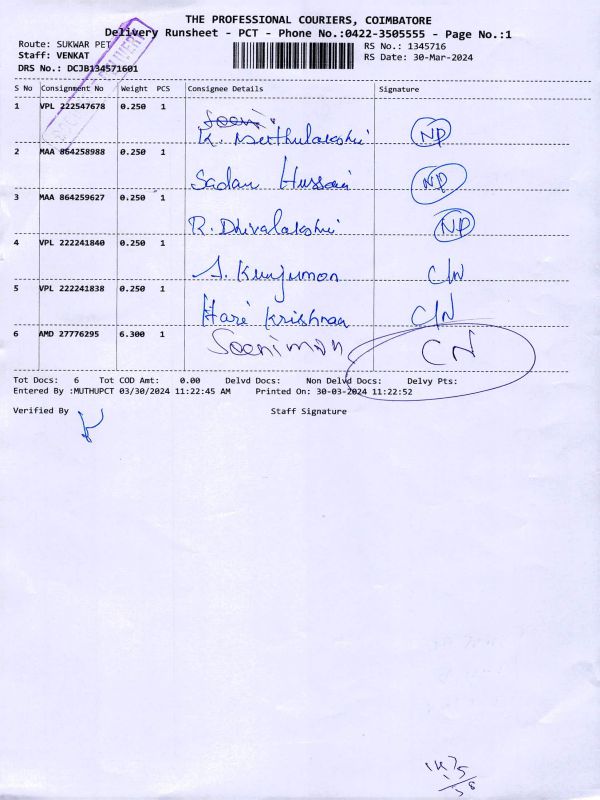 THE PROFESSIONAL COURIERS, COIMBATORE
Delivery Runsheet - PCT - Phone No.:0422-3505555 - Page No.:1
Route: SUKWAR PET RS No.: 1345716
Staff: VENKAT RS Date: 30-Mar-2024
DRS No.: DCJB134571601
DELIVERY
S No Consignment No Weight PCS Consignee Details Signature
1 VPL 222547678 0.250 1
K. Muthulakshmi NP
2 MAA 864258988 0.250 1
Sadam Hussain NP
3 MAA 864259627 0.250 1
R. Dhivalakshmi NP
4 VPL 222241840 0.250 1
S. Kunjumon C/N
5 VPL 222241838 0.250 1
Hare Krishnaa C/N
6 AMD 27776295 6.300 1 Soonimon CN
Tot Docs: 6 Tot COD Amt: 0.00 Delvd Docs: Non Delvd Docs: Delvy Pts:
Entered By :MUTHUPCT 03/30/2024 11:22:45 AM Printed On: 30-03-2024 11:22:52
Verified By Staff Signature